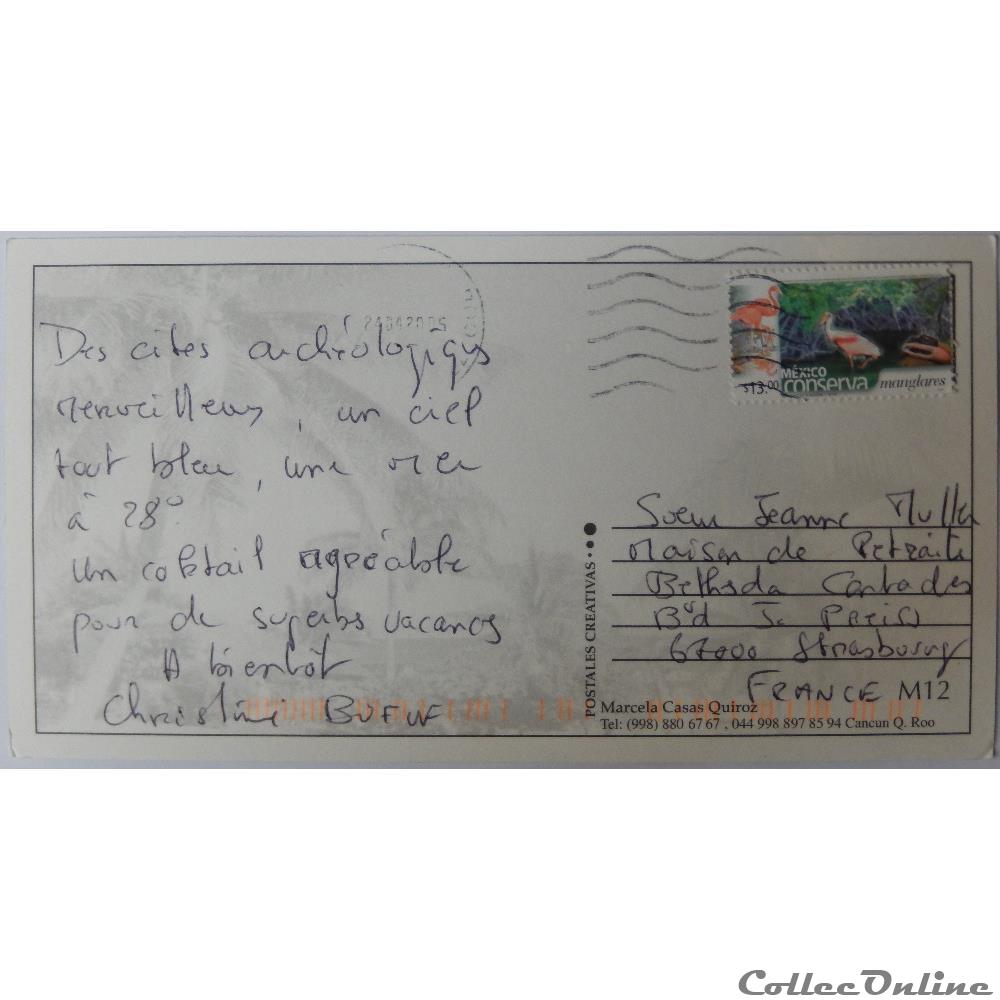 Des cites archéologiques
merveilleux, un ciel
tout bleu, une mer
à 28°
un coktail agréable
pour de superbs vacances
A bientôt
Christine
24042005
MÉXICO
$13.00 conserva manglares
Soeur Jeanne Muller
Maison de Retraite
Bethsda Contades
Bd J. Preiss
67000 Strasbourg
FRANCE M12
POSTALES CREATIVAS
Marcela Casas Quiroz
Tel: (998) 880 67 67 , 044 998 897 85 94 Cancun Q. Roo
CollecOnline